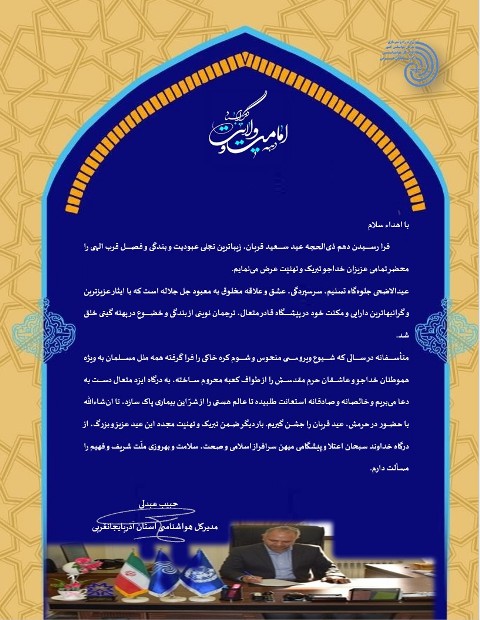 دهه امامت و ولایت
با اهداء سلام
فرا رسیدن دهم ذی‌الحجه عید سعید قربان، زیباترین تجلی عبودیت و بندگی و فصل قرب الهی را
محضر تمامی عزیزان خداجو تبریک و تهنیت عرض می‌نمایم.
عیدالاضحی جلوه‌گاه تسنیم، سرسپردگی، عشق و علاقه مخلوق به معبود جل جلاله است که با ایثار عزیزترین
و گرانبهاترین دارایی و مکنت خود در پیشگاه قادر متعال، ترجمان نوینی از بندگی و خضوع در پهنه گیتی خلق
شد.
متأسفانه در سالی که شیوع ویروسی منحوس و شوم کره خاکی را فرا گرفته همه ملل مسلمان به ویژه
هموطنان خداجو و عاشقان حرم مقدسش را از طواف کعبه محروم ساخته، به درگاه ایزد متعال دست به
دعا می‌بریم و خالصانه و صادقانه استعانت طلبیده تا عالم هستی را از شر این بیماری پاک سازد، تا ان‌شاءالله
با حضور در حرمش، عید قربان را جشن گیریم. بار دیگر ضمن تبریک و تهنیت مجدد این عید عزیز و بزرگ، از
درگاه خداوند سبحان اعتلا و پیشگامی میهن سرافراز اسلامی و صحت، سلامت و بهروزی ملّت شریف و فهیم را
مسألت دارم.
حبیب عبدلی
مدیرکل هواشناسی استان آذربایجانغربی